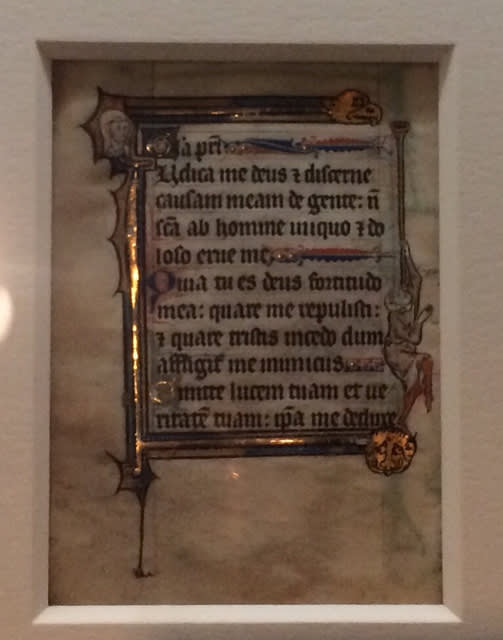 G̅l̅a pr̅i
Judica me deus ⁊ discerne
causam meam de gente: n̅
sc̅a ab homine iniquo ⁊ do
loso erue me
Quia tu es deus fortitudo
mea: quare me repulisti:
⁊ quare tristis incedo dum
affligit̅ me inimicus
Emitte lucem tuam et ue
ritate̅ tuam: ip̅a me deduxe